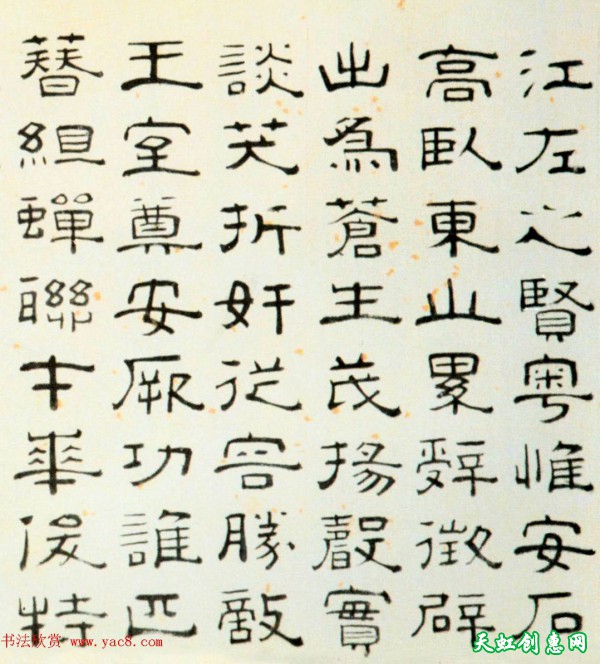 江左之賢粵惟安石
高臥東山累辭徵辟
出爲蒼生茂揚聲實
談笑折奸從容勝敵
王室奠安厥功誰匹
簪組蟬聯才華俊特
书法欣赏 www.yac8.com
天虹创惠网